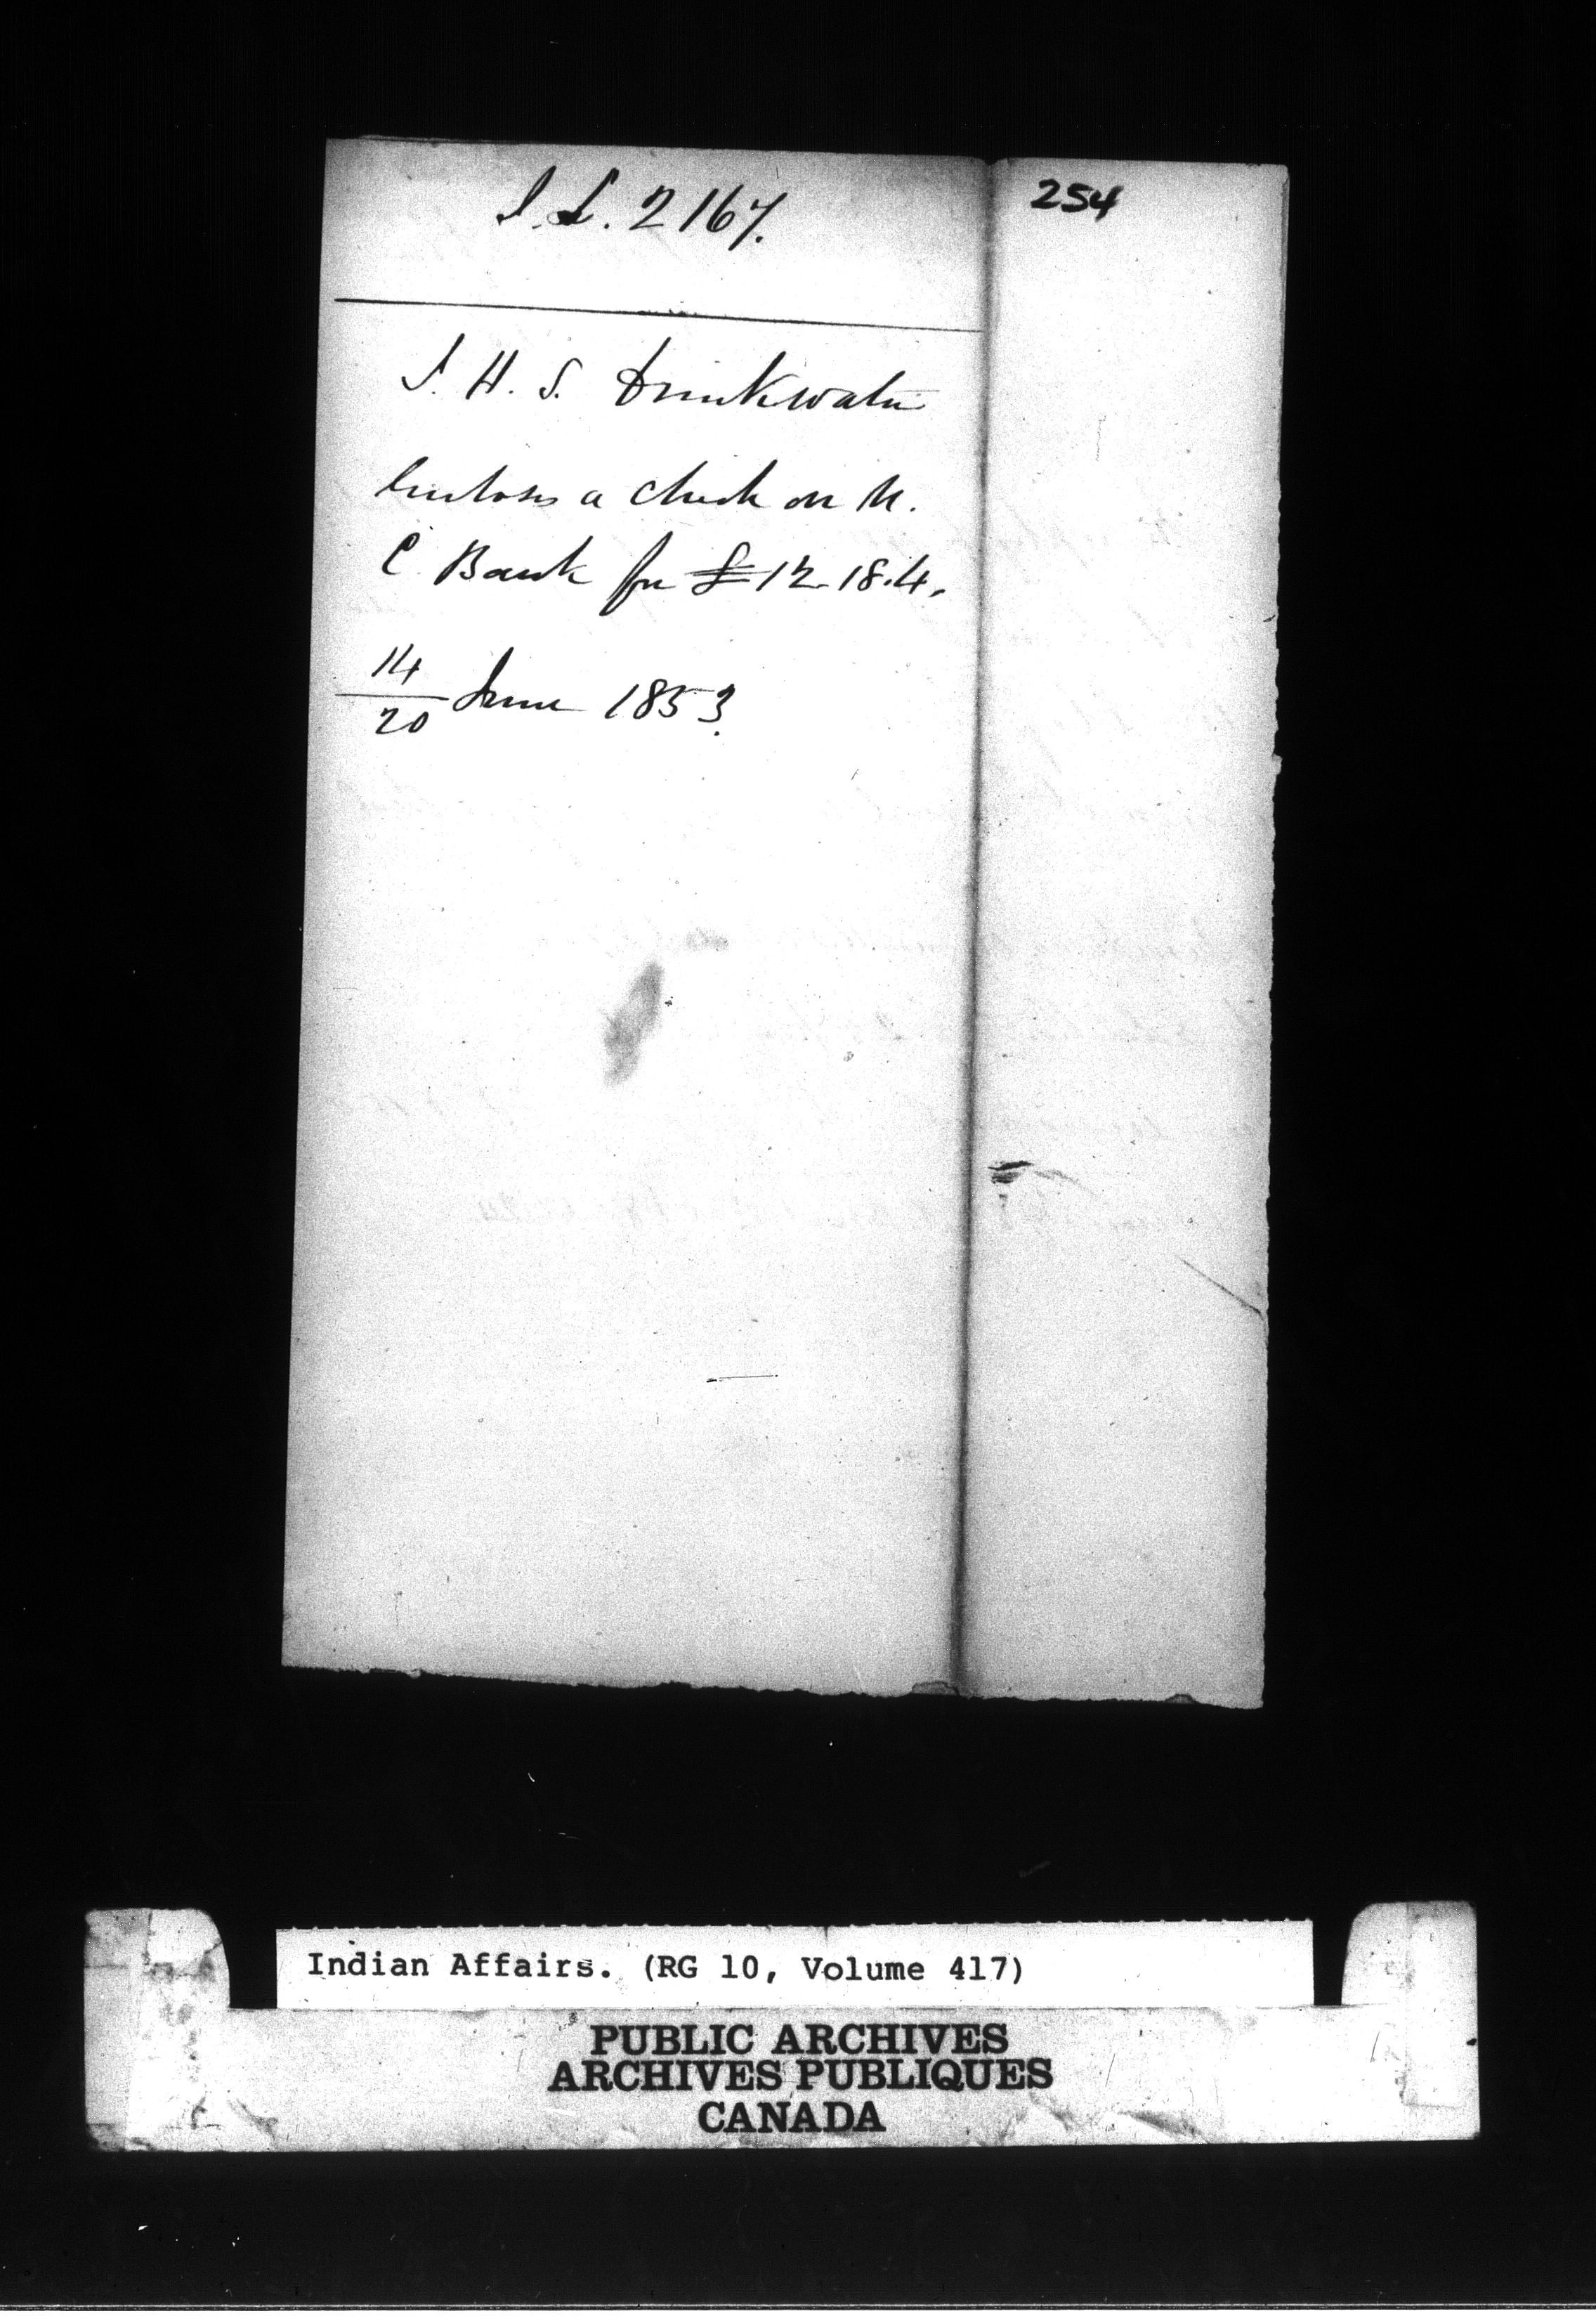 I.L. 2167.
254
J. H. S. Drinkwater
Encloses a check on U.
C. Bank for £12.18.4.
14
20 June 1853.
Indian Affairs. (RG 10, Volume 417)
PUBLIC ARCHIVES
ARCHIVES PUBLIQUES
CANADA